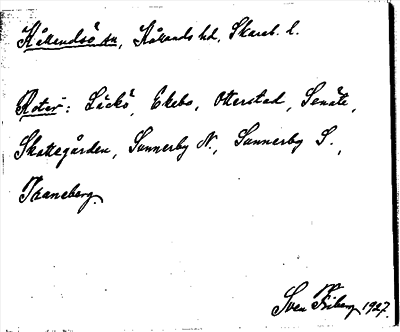 Kållandsö sn, Kållands hd, Skarab. l.
Rotar: Läckö, Ekebo, Otterstad, Senäte,
Skattegården, Sunnerby N., Sunnerby S.,
Traneberg.
Sven Friberg 1927.